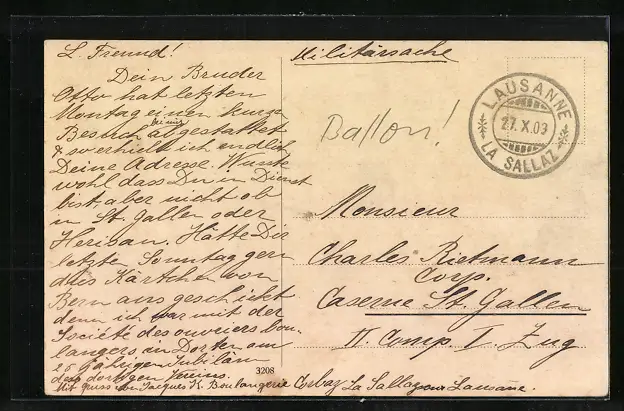 L. Freund!
Dein Bruder
Otto hat letzten
Montag einen kurzen
Besuch bei mir abgestattet
& so erhielt ich endlich
Deine Adresse. Wusste
wohl dass Du in Dienst
bist, aber nicht ob
in St. Gallen oder
Herisau. Hätte Dir
letzte Sonntag gern
dies Kärtchen von
Bern aus geschickt
denn ich war mit der
Société des ouvriers bou-
langers, in am
25 Jährigen Jubiläum
des dortigen Vereins.
Mit gruss von Jacques K. Boulangerie Corbaz La Sallaz sur Lausanne.
Militärsache
Ballon!
LAUSANNE
27.X.09
LA SALLAZ
Monsieur
Charles Rietmann
Corp.
Caserne St. Gallen
II. Comp. I. Zug
3208